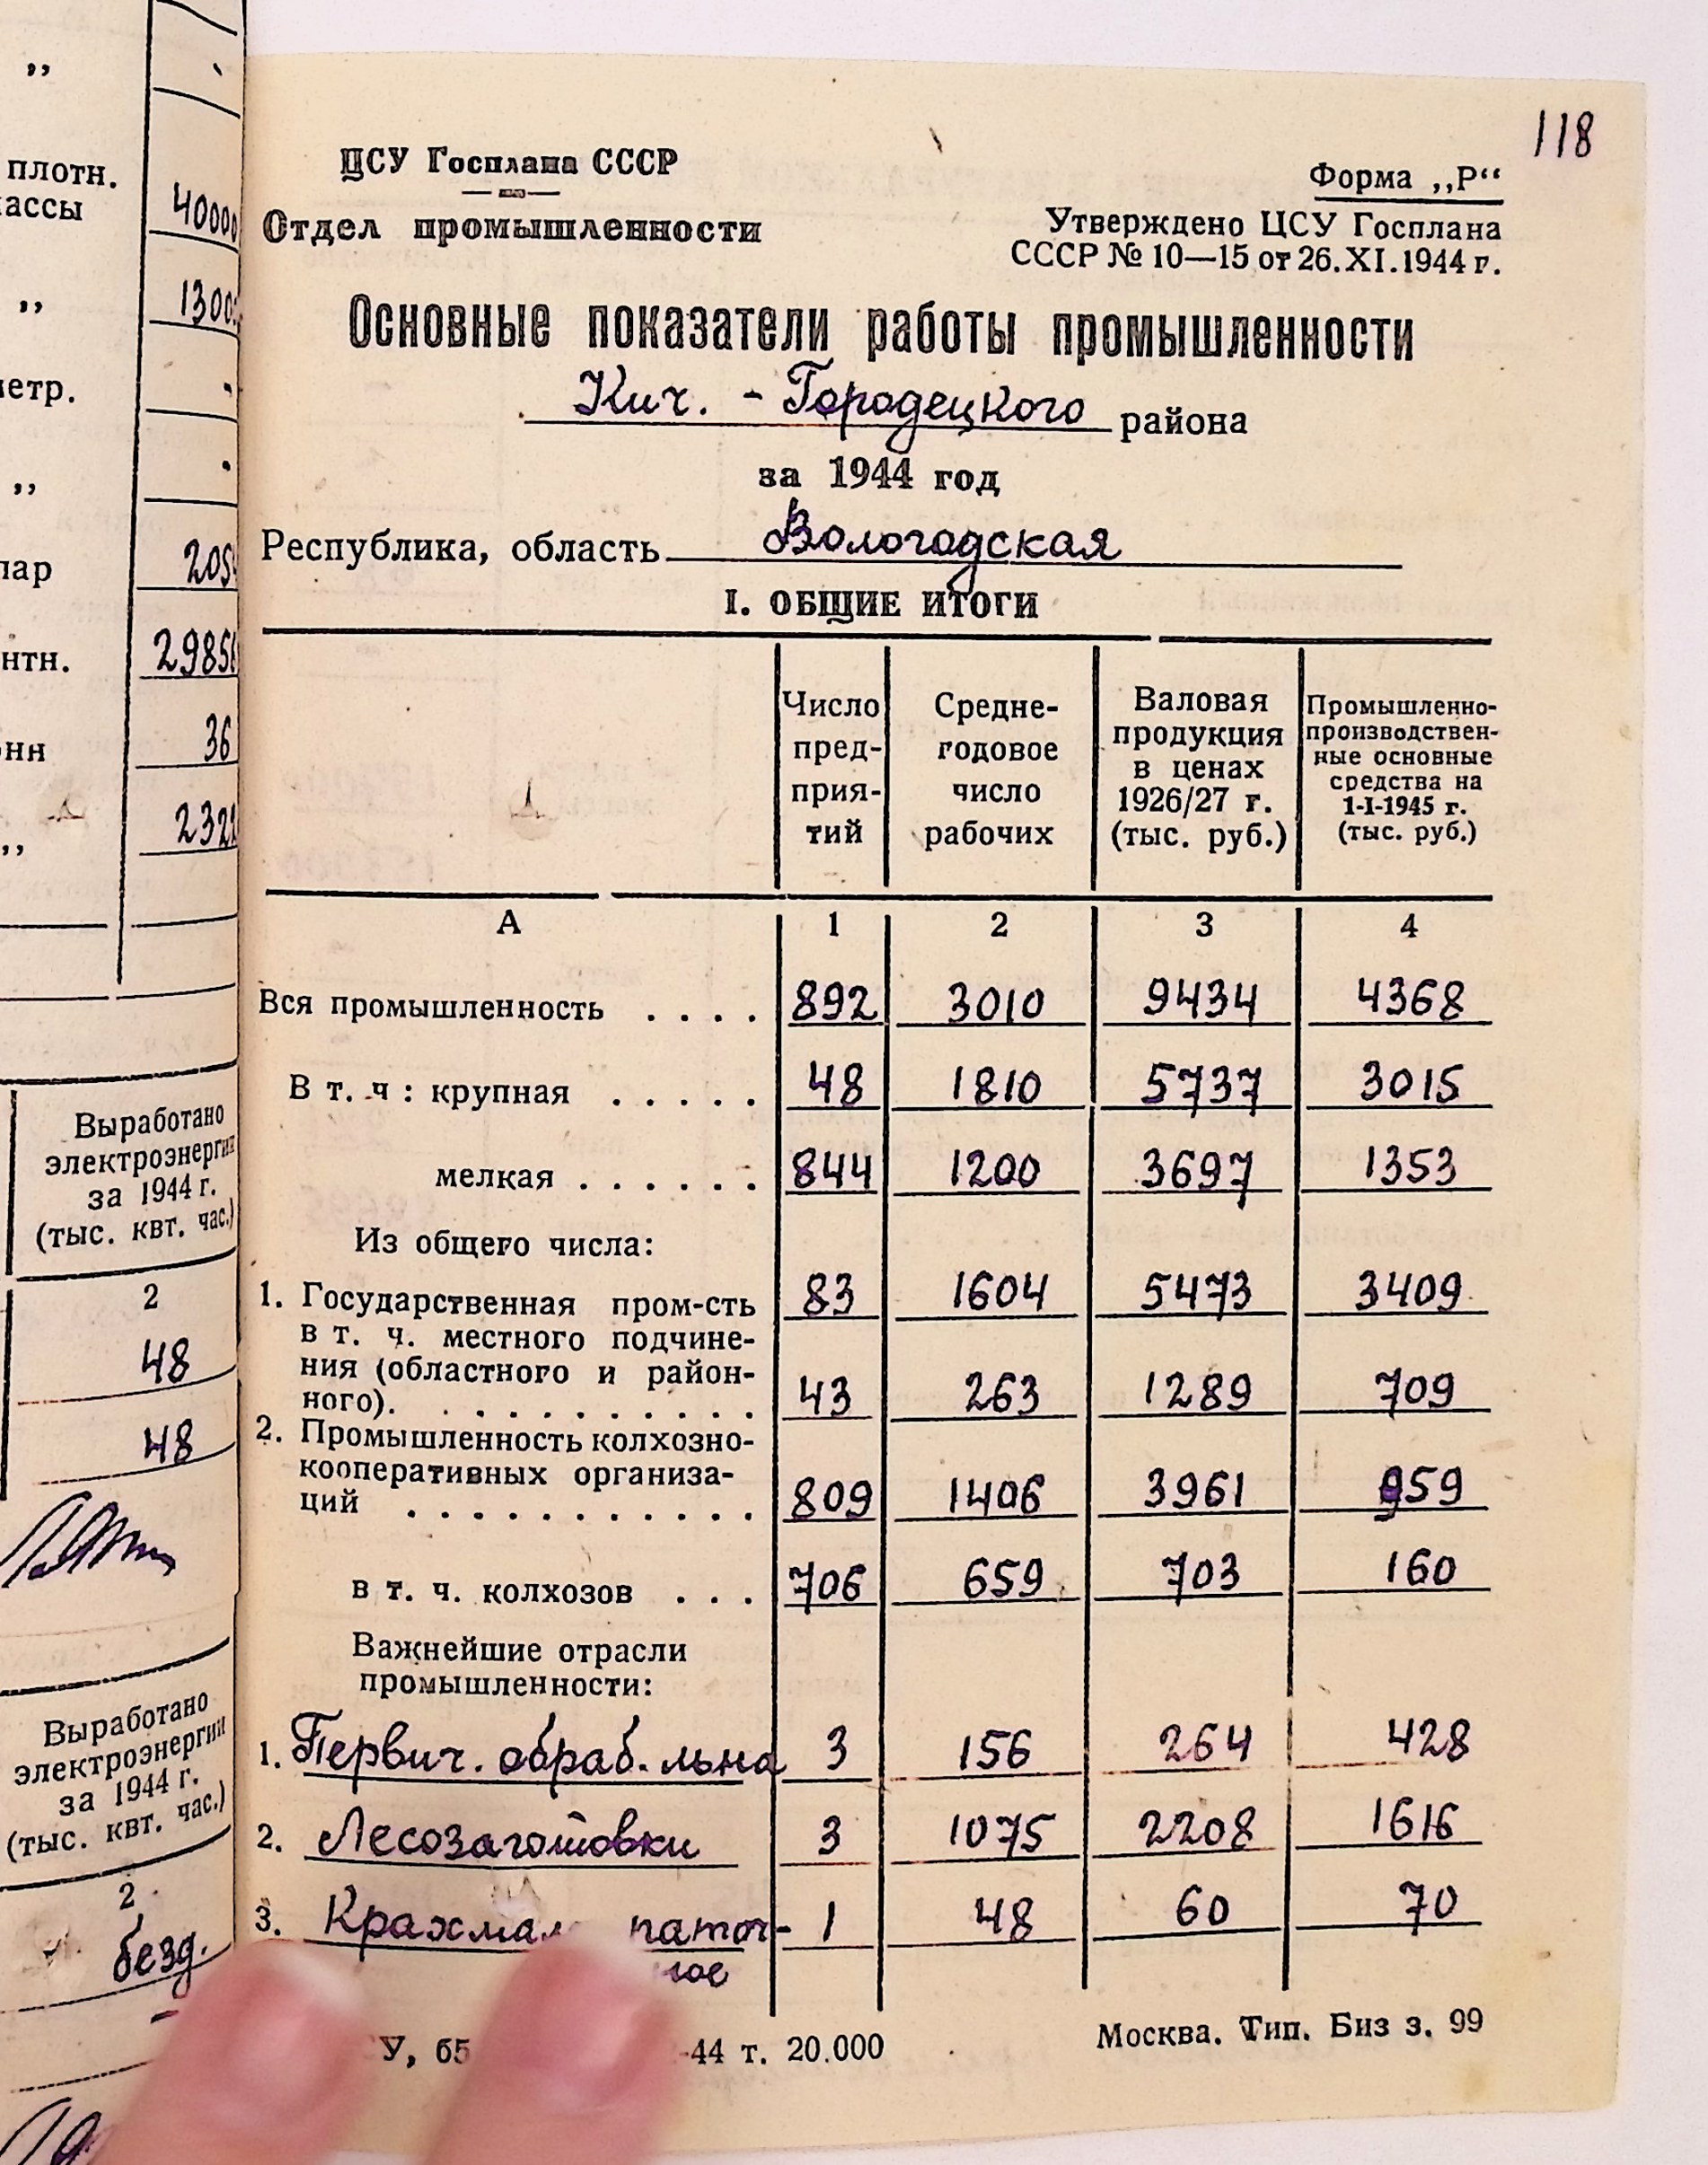 „
плотн.
40000
„
етр.
„
пар
нтн.
36
нн
„
Выработано
электроэнергии
за 1944 г.
(тыс. квт. час.)
2
48
48
Выработано
электроэнергии
за 1944 г.
(тыс. квт. час.)
2
безд.
118
ЦСУ Госплана СССР
Отдел промышленности
Форма „Р“
Утверждено ЦСУ Госплана
СССР № 10—15 от 26.XI.1944 г.
Основные показатели работы промышленности
Кич. - Городецкого района
за 1944 год
Республика, область Вологодская
I. ОБЩИЕ ИТОГИ
Число пред- прия- тий
Средне- годовое число рабочих
Валовая продукция в ценах 1926/27 г. (тыс. руб.)
Промышленно- производствен- ные основные средства на 1-I-1945 г. (тыс. руб.)
А 1 2 3 4
Вся промышленность . . . . 892 3010 9434 4368
В т. ч : крупная . . . . . 48 1810 5737 3015
мелкая . . . . . . 844 1200 3697 1353
Из общего числа:
1. Государственная пром-сть 83 1604 5473 3409
в т. ч. местного подчине-
ния (областного и район-
ного). . . . . . . . . . . 43 263 1289 709
2. Промышленность колхозно-
кооперативных организа-
ций . . . . . . . . . . . 809 1406 3961 959
в т. ч. колхозов . . . 706 659 703 160
Важнейшие отрасли
промышленности:
1. Первич. обраб. льна 3 156 264 428
2. Лесозаготовки 3 1075 2208 1616
3. паточ- 1 48 60 70
ное
-44 т. 20.000
Москва. Тип. Биз з. 99